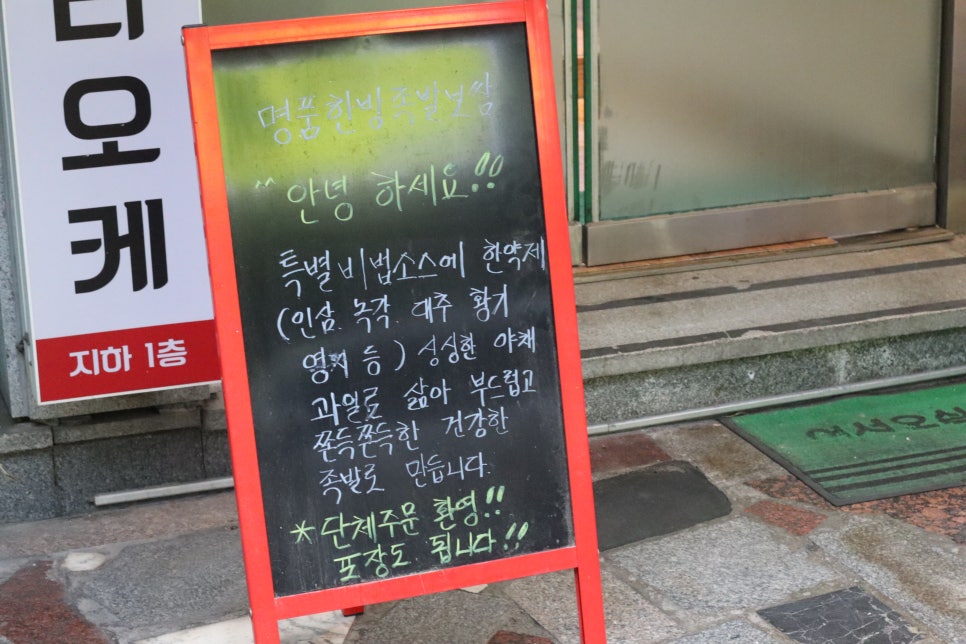 오
케
지하 1층
명품한방족발보쌈
"안녕 하세요!!
특별비법소스에 한약제
(인삼. 녹각. 대추 황기
영지 등) 싱싱한 야채
과일로 삶아 부드럽고
쫀득쫀득한 건강한
족발로 만듭니다.
*단체주문 환영!!
포장도 됩니다!!
어서오십